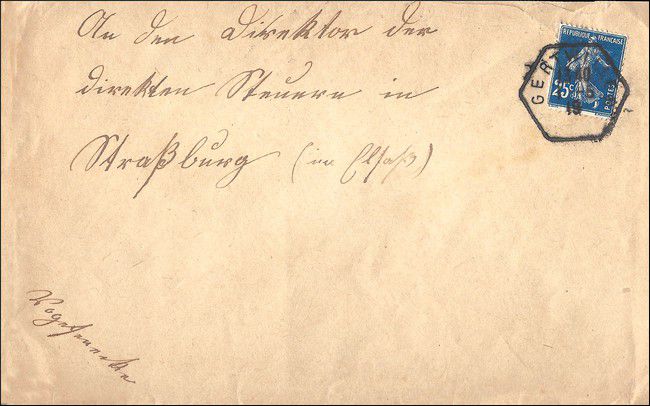 An den Direktor der
direkten Steuern in
Straßburg (im Elsaß)
Vogesenecke
REPUBLIQUE FRANÇAISE
25c
POSTES
GERT
19